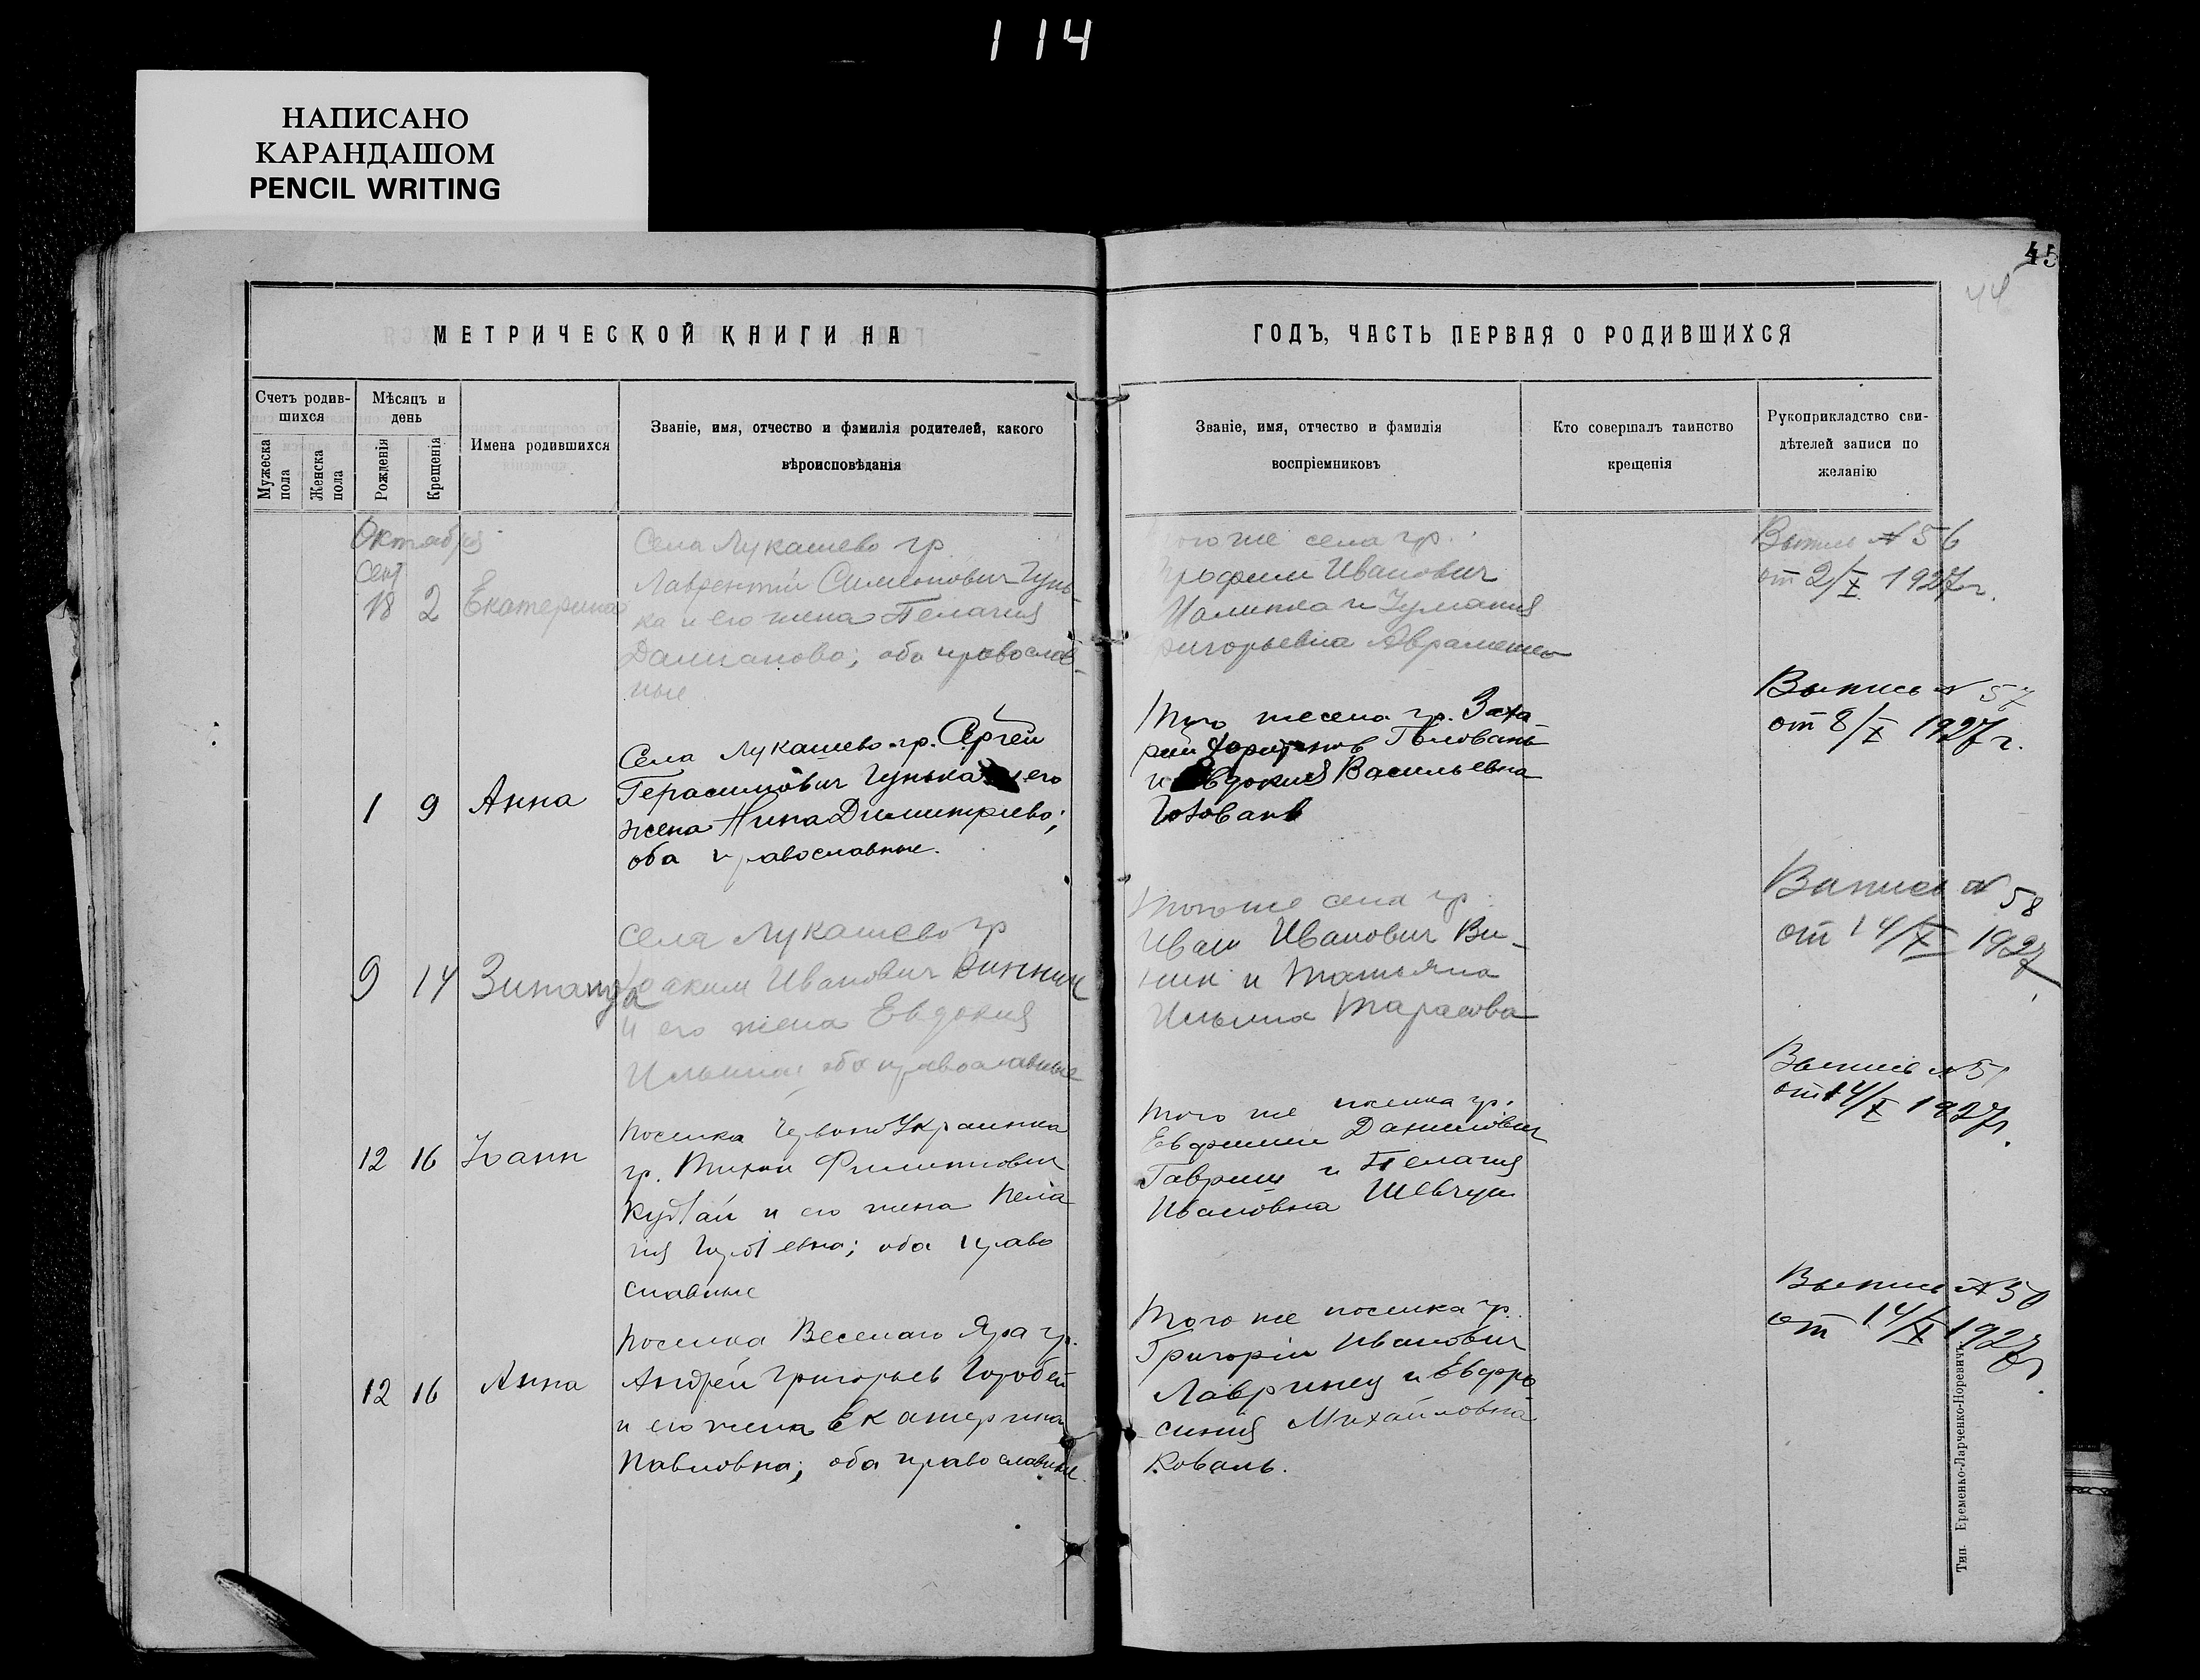 114
НАПИСАНО
КАРАНДАШОМ
PENCIL WRITING
45
44
МЕТРИЧЕСКОЙ КНИГИ НА
ГОДЪ, ЧАСТЬ ПЕРВАЯ О РОДИВШИХСЯ
Счетъ родив-
шихся
Мужеска
пола
Женска
пола
Мѣсяцъ и
день
Рожденія
Крещенія
Имена родившихся
Званіе, имя, отчество и фамилія родителей, какого
вѣроисповѣданія
Званіе, имя, отчество и фамилія
воспріемниковъ
Кто совершалъ таинство
крещенія
Рукоприкладство сви-
дѣтелей записи по
желанію
Октября
Сент
18 2 Екатерина
Села Лукашево гр.
Лаврентий Симеонович Гунь-
ка и его жена Пелагия
Дамианова; оба православ-
ные
того же села гр.
Трофим Иванович
и
Григорьевна Авраменко
Выпись № 56
от 2/X 1927 г.
1 9 Анна
Села Лукашево гр. Сергей
Герасимович Гунька и его
жена Нина Димитриева;
оба православные.
Того же села гр. Заха-
рий Голован
и Евдокия Васильевна
Голован
Выпись № 57
от 8/X 1927 г.
9 14 Зинаида
Села Лукашево гр
Иоаким Иванович Винник
и его жена Евдокия
Ильина; оба православные
того же села гр.
Иван Иванович Ви-
нник и Татьяна
Ильина Тарасова
Выпись № 58
от 14/X 1927
12 16 Иоанн
поселка Червоно Украинка
гр. Тихон Филиппович
и его жена Пела
гия; оба право
славные
того же поселка гр.
Евфимий Данилович
Гавриш и Пелагия
Ивановна Шевчук
Выпись № 5
от 14/X 1927 г.
12 16 Анна
поселка Веселаго Яра гр.
Андрей Григорьев Горобей
и его жена Екатерина
Павловна; оба православные.
Того же поселка гр.
Григорий Иванович
Лавринец и Евфро
синия Михайловна
Коваль.
Выпись № 50
от 14/X 1927 г.
Тип. Еременко-Ларченко-Норевичъ